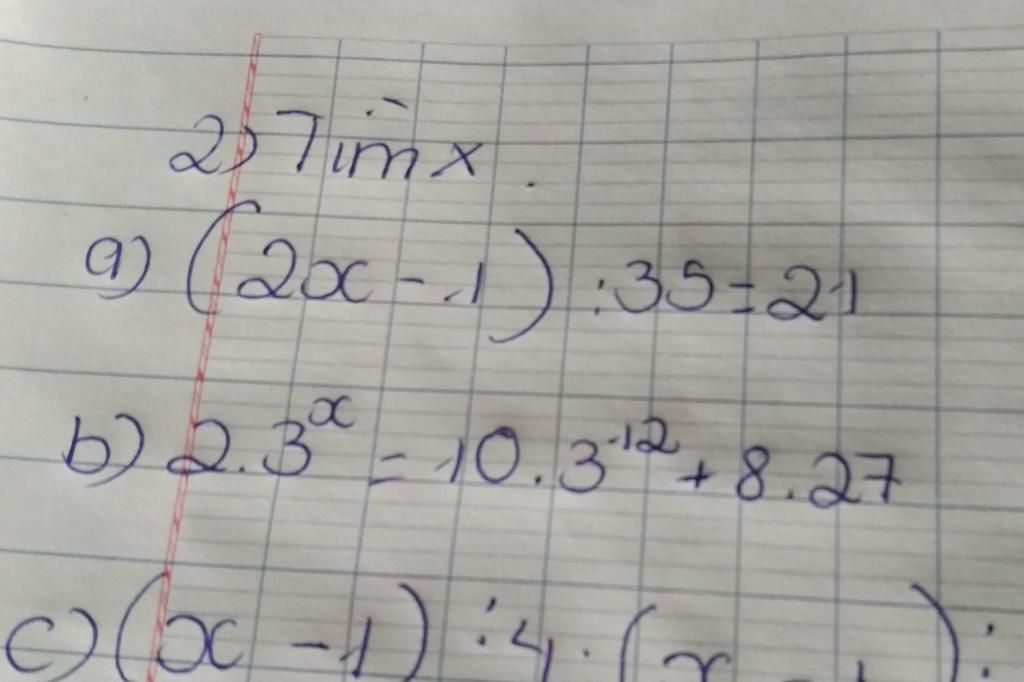 2) Tìm x.
a) (2x - 1) : 35 = 21
b) 2.3^x = 10.3^12 + 8.27
c) (x - 1) : 4 . (